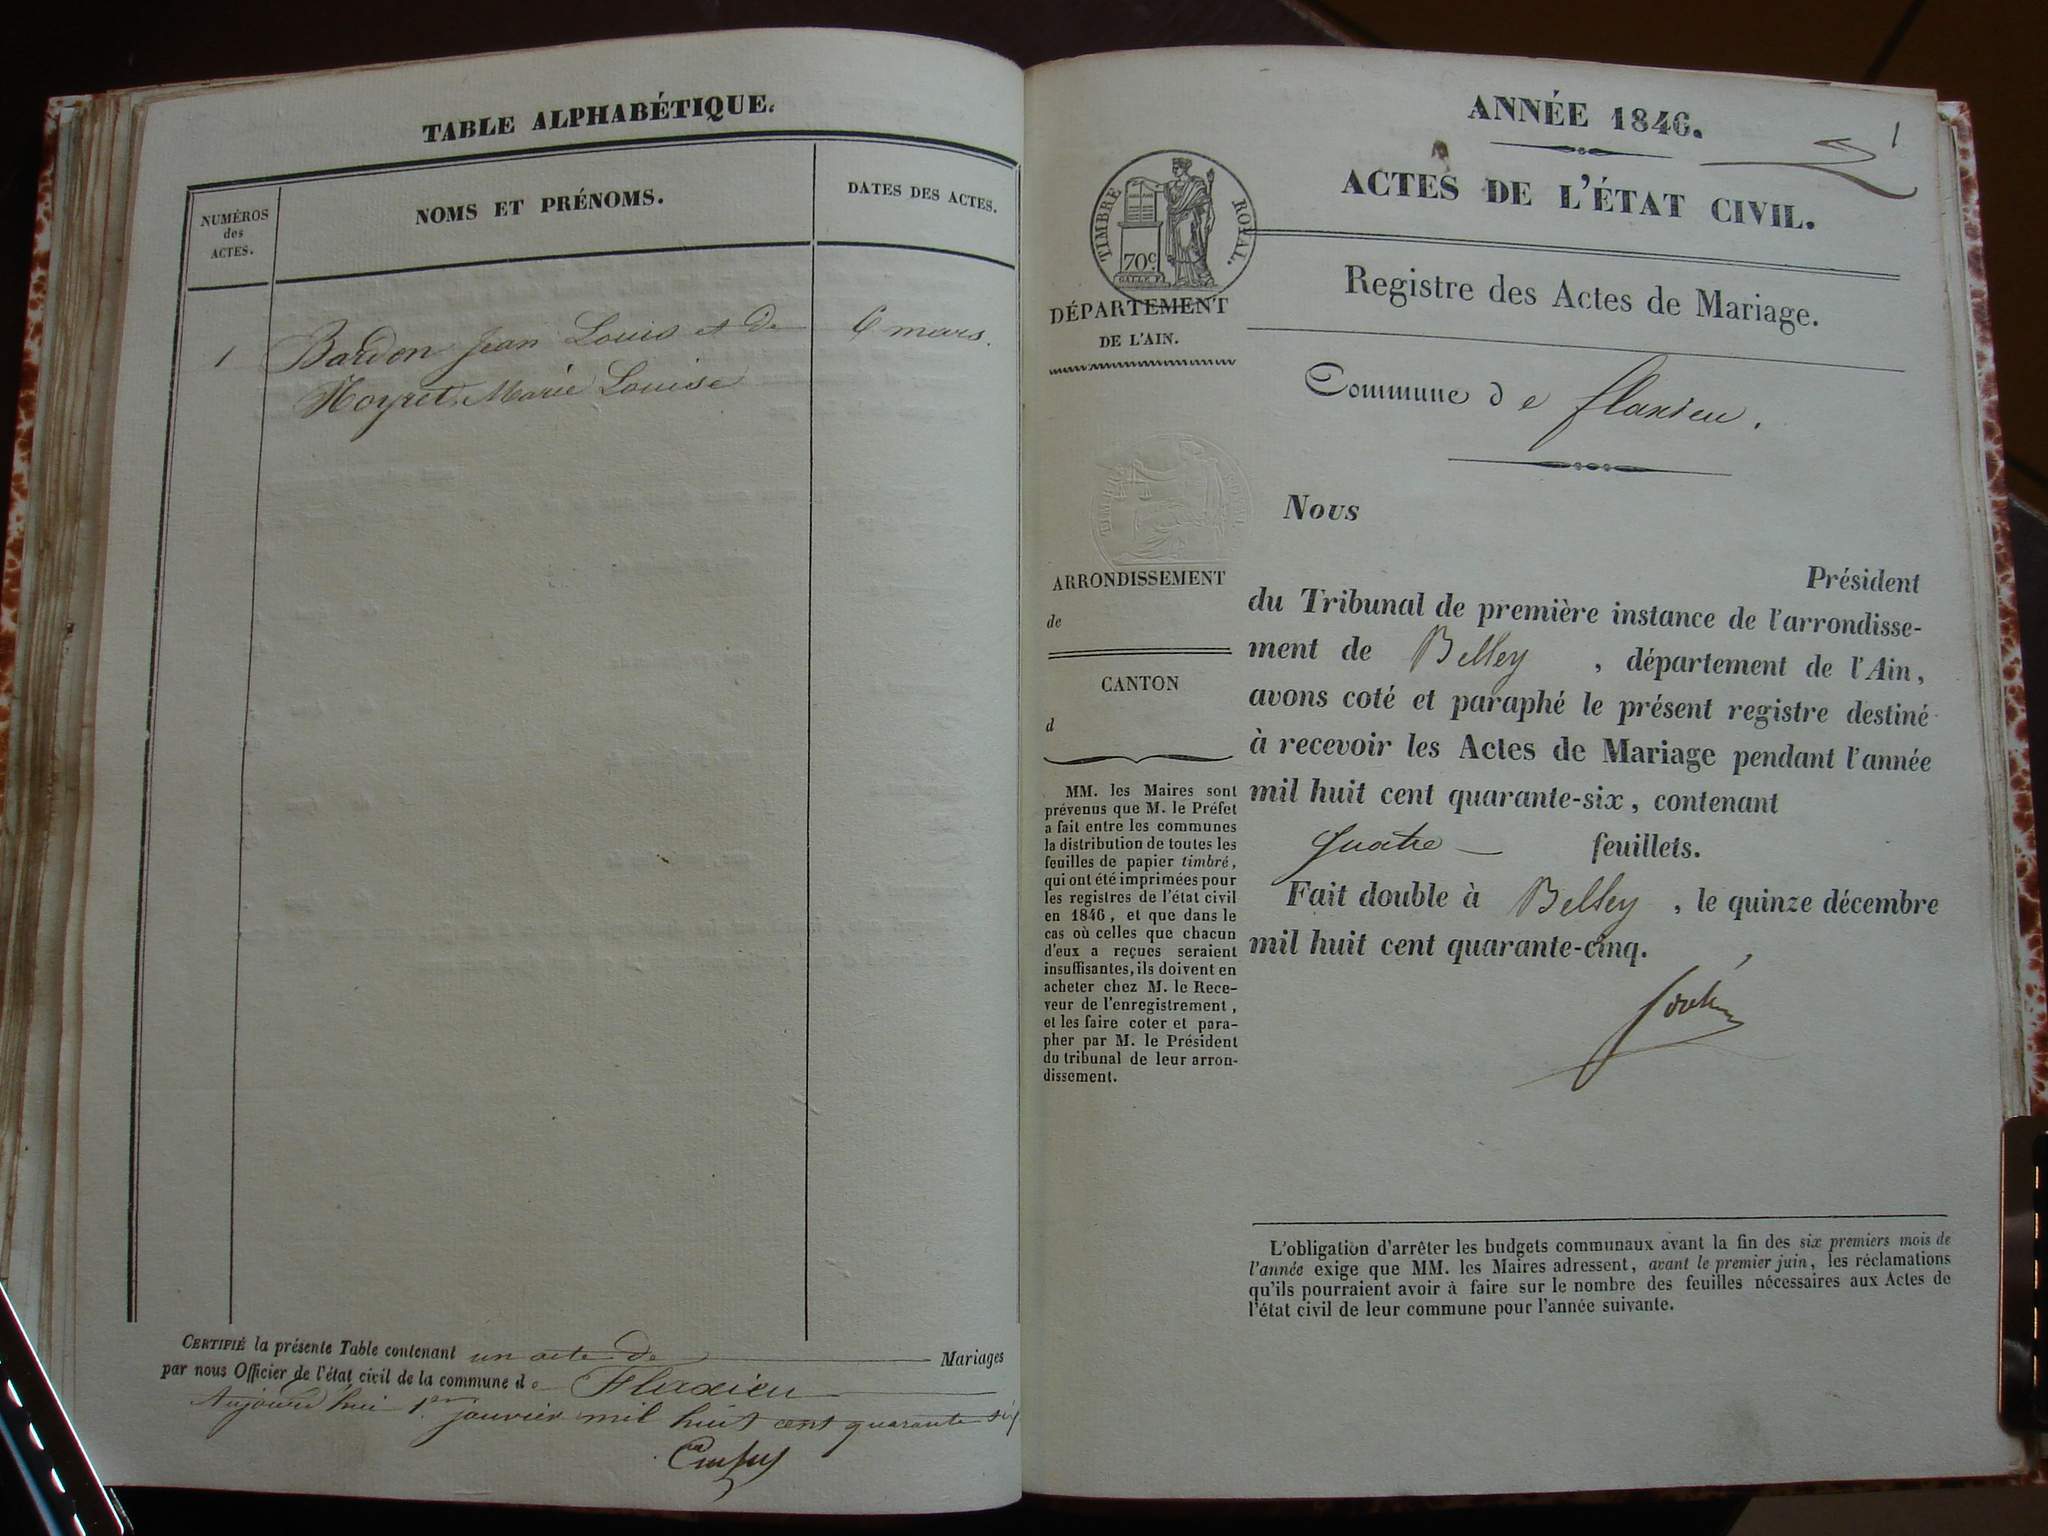 TABLE ALPHABÉTIQUE.
NUMÉROS
des
ACTES.
NOMS ET PRÉNOMS.
DATES DES ACTES.
1 Bardon Jean Louis et de 6 mars.
Moyret Marie Louise
CERTIFIÉ la présente Table contenant un acte de Mariages
par nous Officier de l'état civil de la commune de Flaxieu
Aujourd'hui 1er janvier mil huit cent quarante six
1
ANNÉE 1846.
ACTES DE L'ÉTAT CIVIL.
TIMBRE ROYAL.
70c
DÉPARTEMENT
DE L'AIN.
Registre des Actes de Mariage.
Commune de flaxieu.
TIMBRE ROYAL
Nous
Président
du Tribunal de première instance de l'arrondisse-
ment de Belley, département de l'Ain,
avons coté et paraphé le présent registre destiné
à recevoir les Actes de Mariage pendant l'année
mil huit cent quarante-six, contenant
quatre — feuillets.
Fait double à Belley, le quinze décembre
mil huit cent quarante-cinq.
ARRONDISSEMENT
de
CANTON
d
MM. les Maires sont
prévenus que M. le Préfet
a fait entre les communes
la distribution de toutes les
feuilles de papier timbré,
qui ont été imprimées pour
les registres de l'état civil
en 1846, et que dans le
cas où celles que chacun
d'eux a reçues seraient
insuffisantes, ils doivent en
acheter chez M. le Rece-
veur de l'enregistrement,
et les faire coter et para-
pher par M. le Président
du tribunal de leur arron-
dissement.
L'obligation d'arrêter les budgets communaux avant la fin des six premiers mois de
l'année exige que MM. les Maires adressent, avant le premier juin, les réclamations
qu'ils pourraient avoir à faire sur le nombre des feuilles nécessaires aux Actes de
l'état civil de leur commune pour l'année suivante.